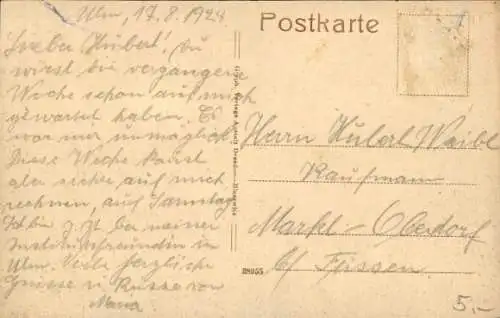 Ulm, 17.8.1924
Postkarte
Lieber Hubert! Du
wirst die vergangene
Woche schon auf mich
gewartet haben. Es
war mir unmöglich
Diese Woche kannst
aber sicher auf mich
rechnen, auf Samstag
Ich bin z. Zt. bei meiner
Institutsfreundin in
Ulm. Viele herzliche
Grüsse u. Küsse von
Maria
Dresden-Blasewitz
38055
Herrn Hubert Waibl
Kaufmann
Markt-Oberdorf
b/ Füssen
5.-